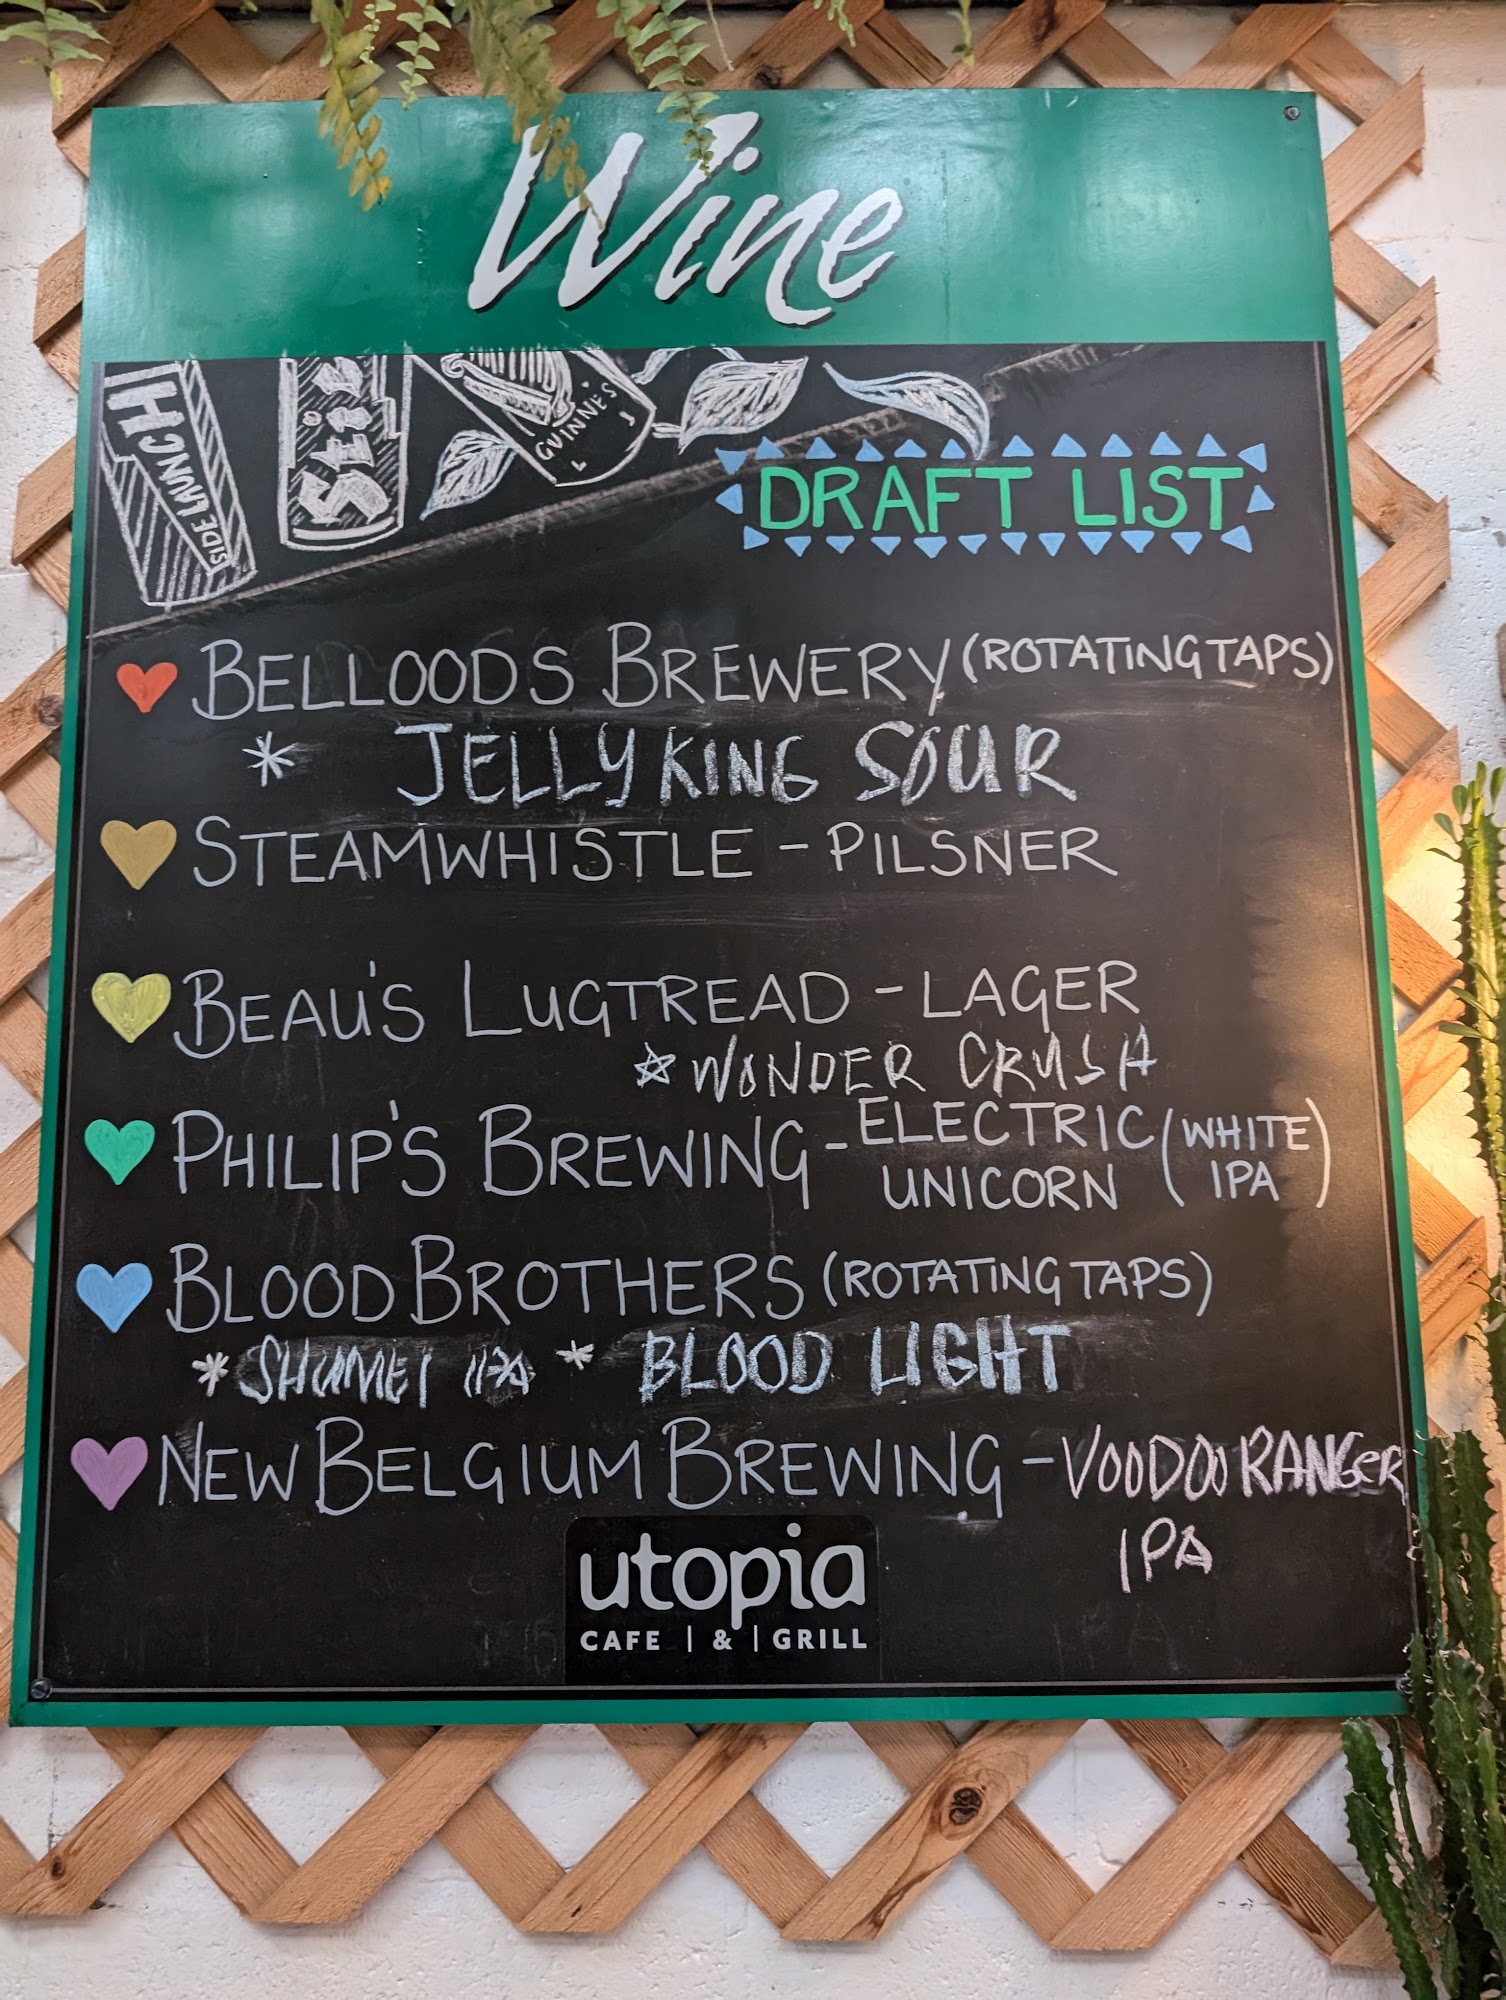 Wine
SIDE LAUNCH
GUINNESS
DRAFT LIST
BELLOODS BREWERY (ROTATING TAPS)
* JELLY KING SOUR
STEAMWHISTLE - PILSNER
BEAU'S LUGTREAD - LAGER
☆ WONDER CRUSH
PHILIP'S BREWING - ELECTRIC UNICORN (WHITE IPA)
BLOOD BROTHERS (ROTATING TAPS)
* SHUMEI IPA * BLOOD LIGHT
NEW BELGIUM BREWING - VOODOO RANGER
IPA
utopia
CAFE | & | GRILL